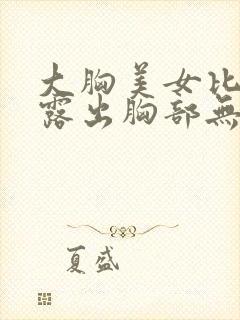 大胸美女比
露出胸部無
夏盛